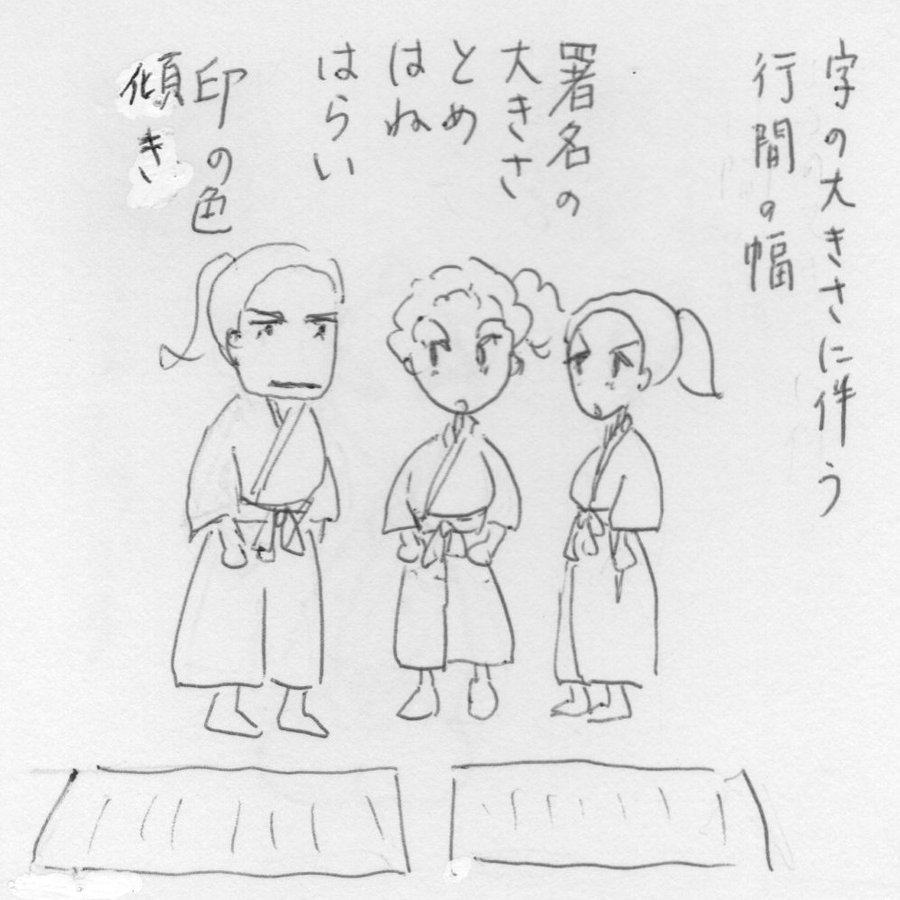 字の大きさに伴う
行間の幅
署名の
大きさ
とめ
はね
はらい
印の色
傾き